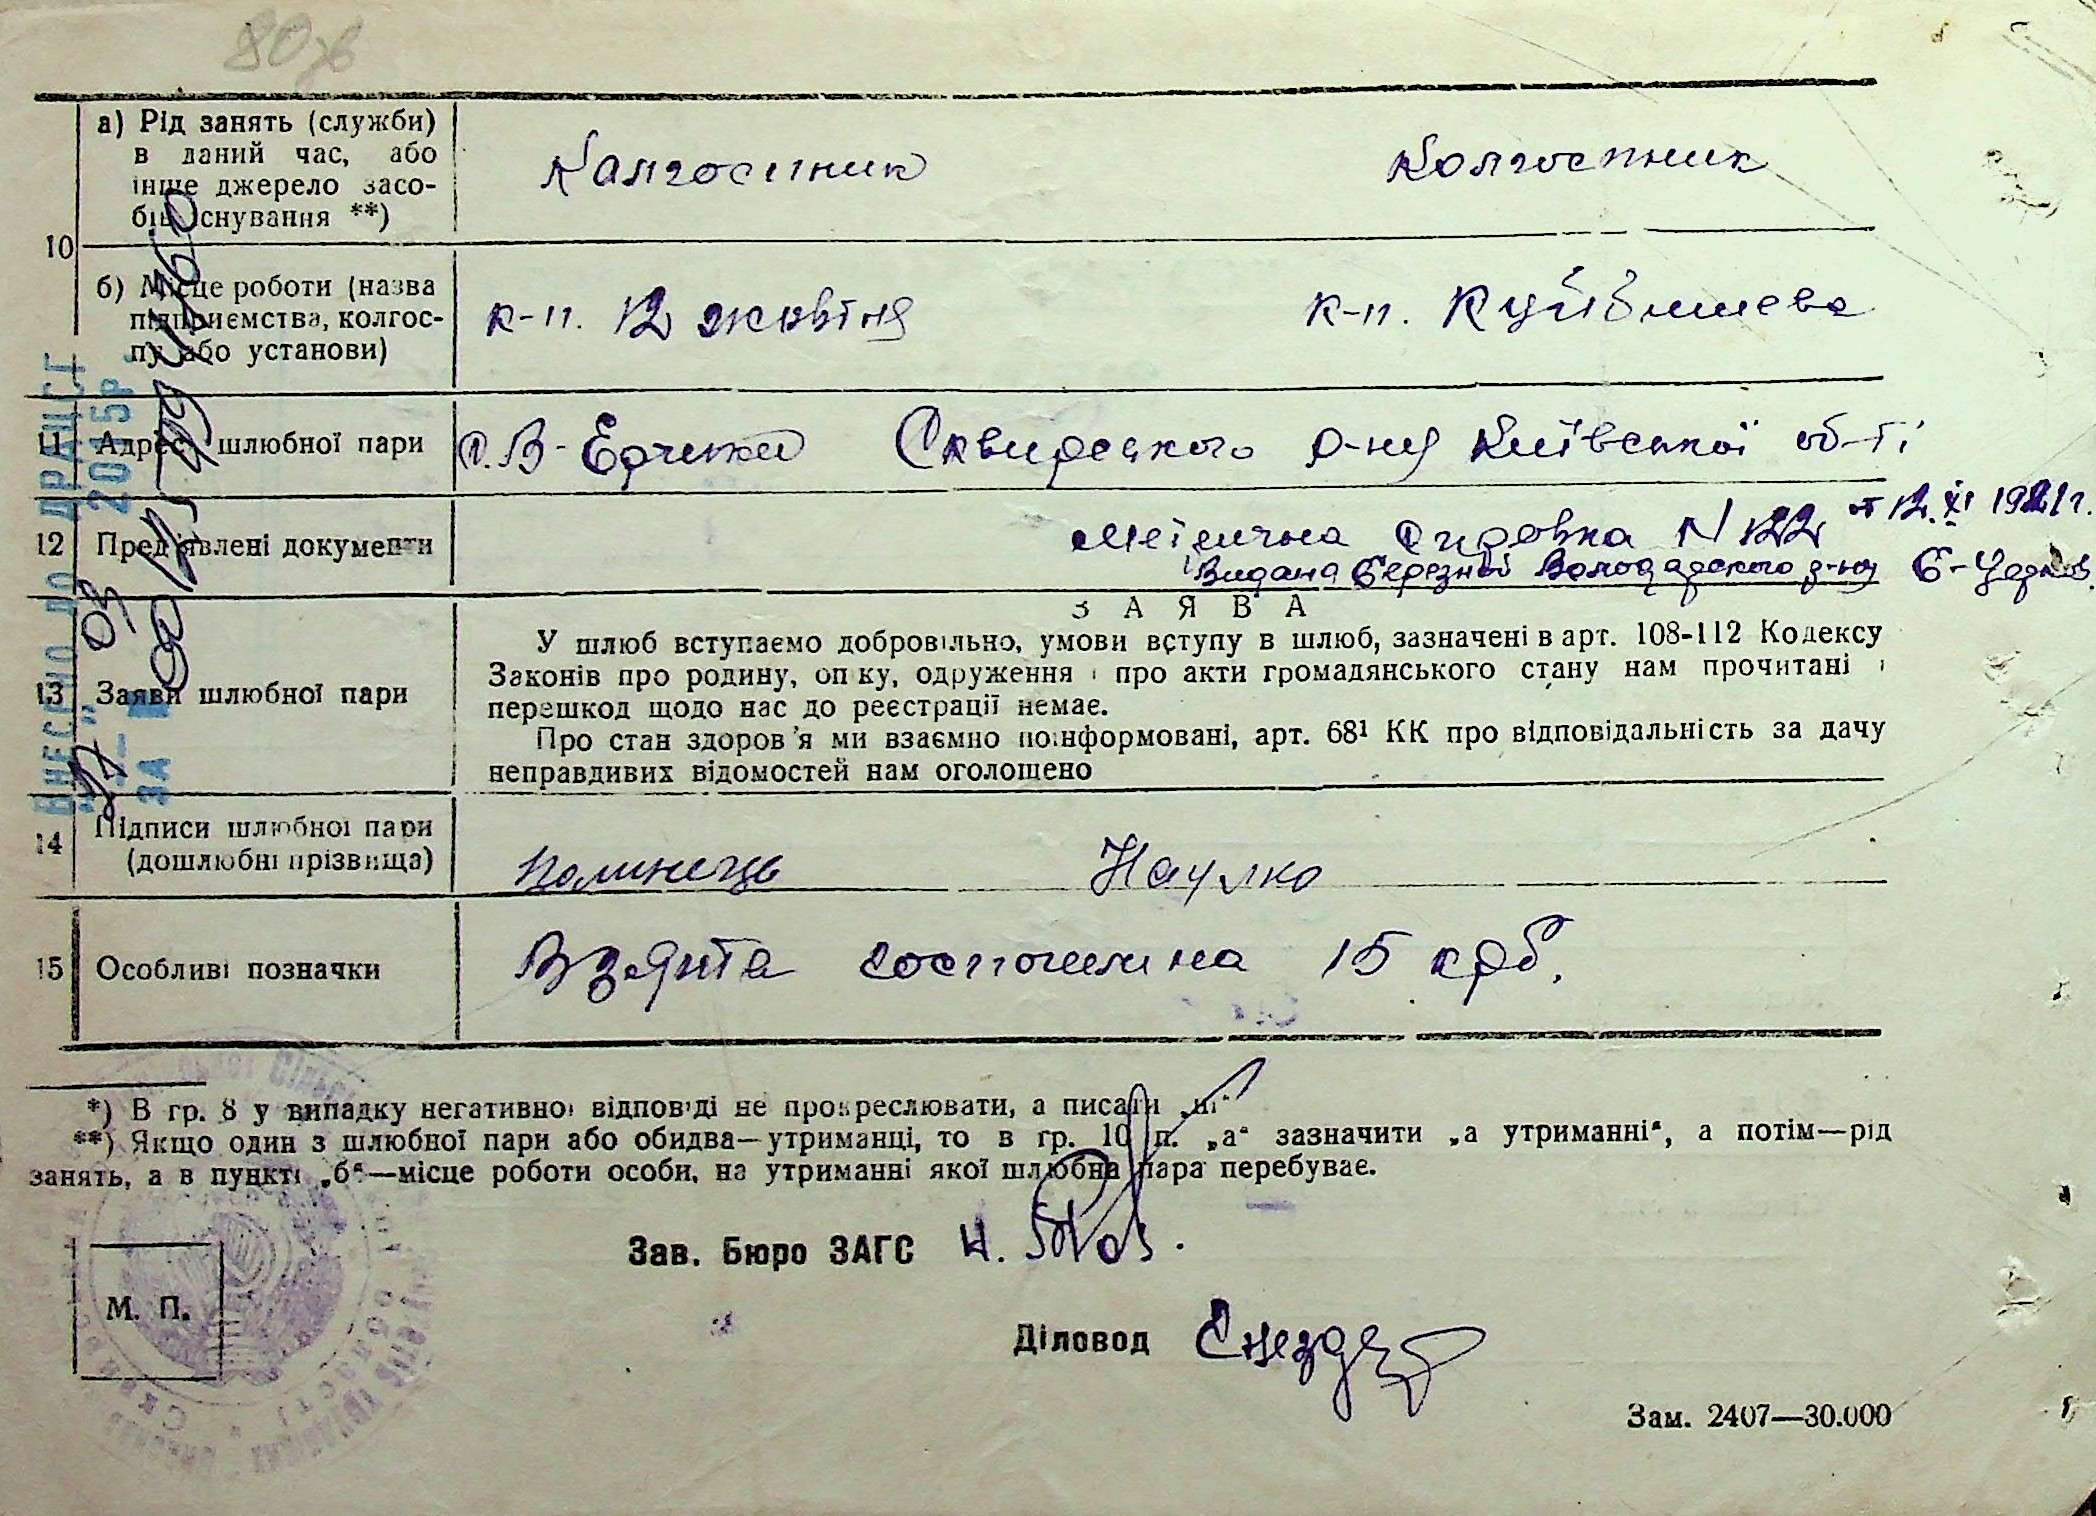 80
а) Рід занять (служби)
в даний час, або
інше джерело засо-
бів існування **)
Колгоспник
Колгоспник
10
б) Місце роботи (назва
підприємства, колгос-
пу або установи)
к-п. 12 жовтня
к-п. Куйбишева
11 Адреса шлюбної пари
с. В-Єрчики Сквирського р-ну Київської об-ті
12 Пред'явлені документи
Метична справка N 122 от 12. XI 1921 г.
Видана Березной Володарского р-ну Б-Церков.
13 Заяви шлюбної пари
ЗАЯВА
У шлюб вступаємо добровільно, умови вступу в шлюб, зазначені в арт. 108-112 Кодексу
Законів про родину, опіку, одруження і про акти громадянського стану нам прочитані і
перешкод щодо нас до реєстрації немає.
Про стан здоров'я ми взаємно поінформовані, арт. 68¹ КК про відповідальність за дачу
неправдивих відомостей нам оголошено
14 Підписи шлюбної пари
(дошлюбні прізвища)
Полинець Наулко
15 Особливі позначки
Взянта госпошлина 15 крб.
*) В гр. 8 у випадку негативної відповіді не прокреслювати, а писати „ні"
**) Якщо один з шлюбної пари або обидва—утриманці, то в гр. 10 п. „а" зазначити „а утриманні", а потім—рід
занять, а в пункті „б"—місце роботи особи, на утриманні якої шлюбна пара перебуває.
Зав. Бюро ЗАГС
М. П.
Діловод
Зам. 2407—30.000
ВНЕСЕНО ДО ДРАЦСГ
"27" 03 2015р.
ЗА №